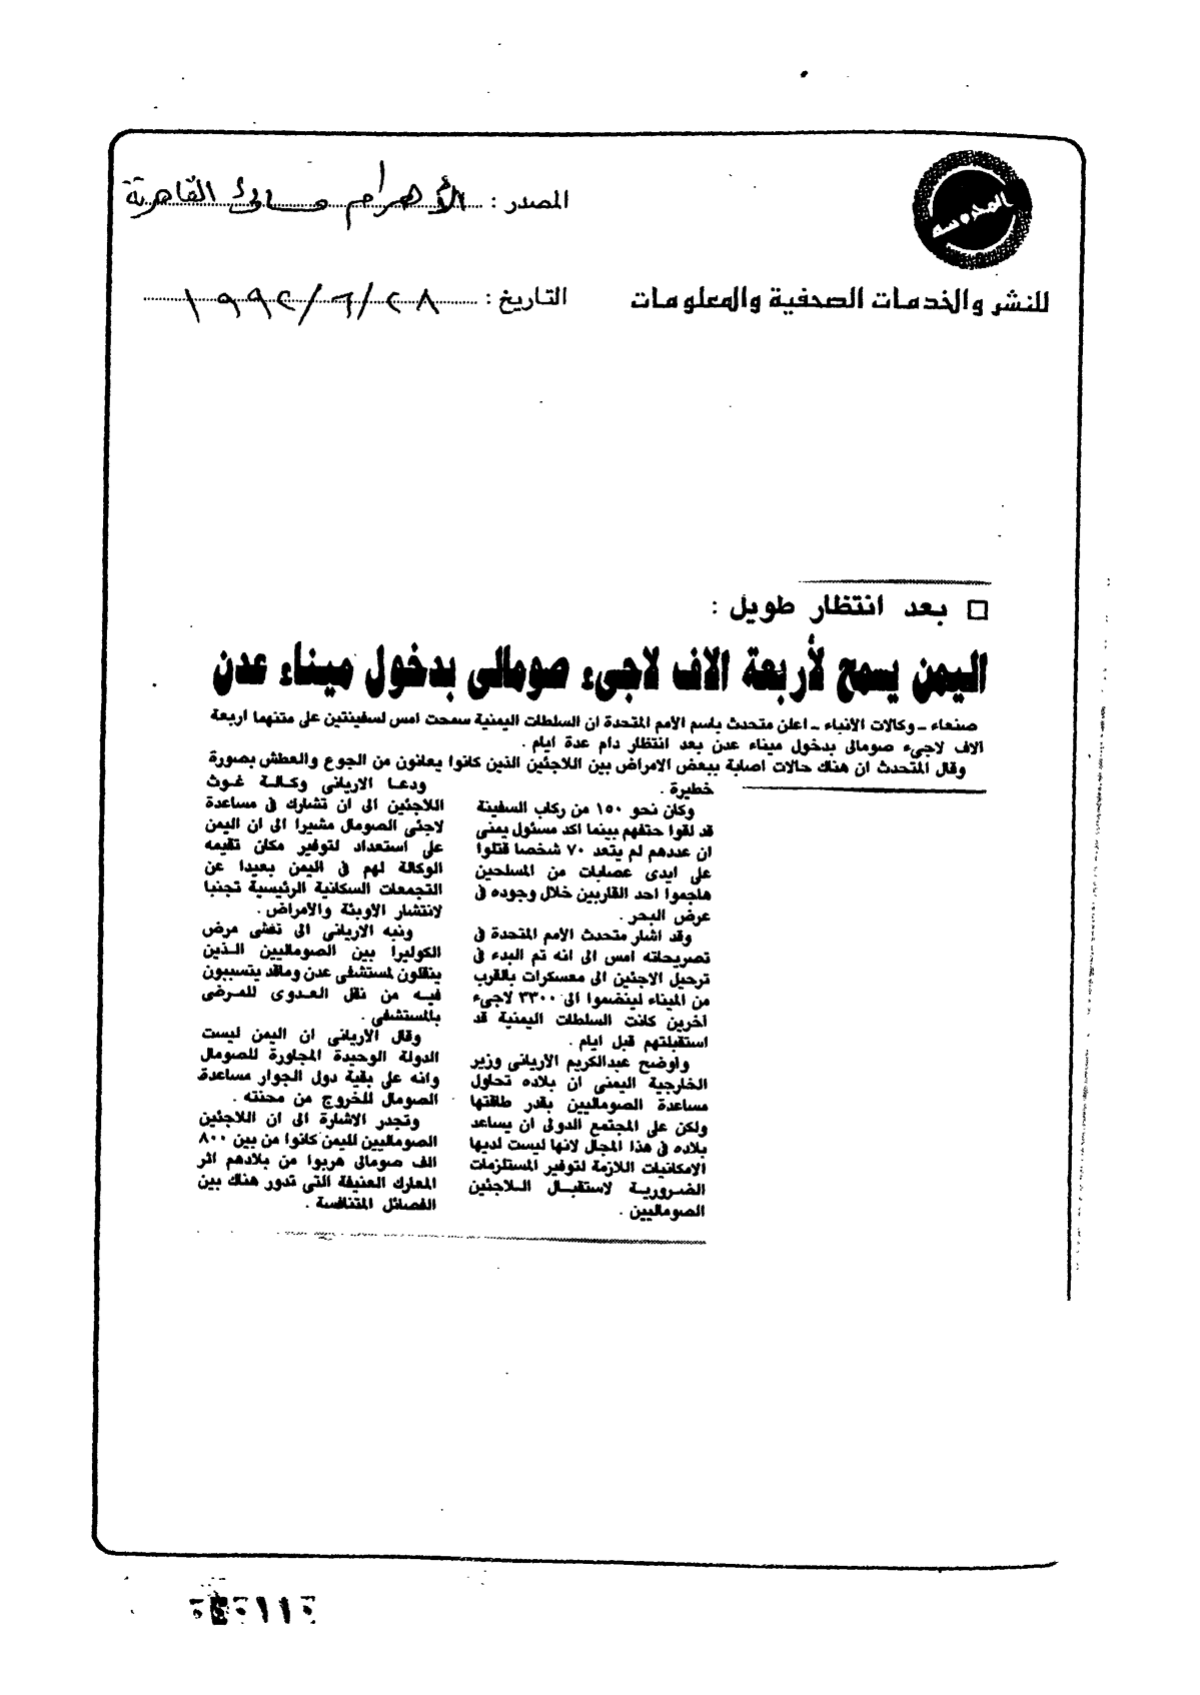 المحروسة
للنشر والخدمات الصحفية والمعلومات
المصدر : الأهرام مسائى القاهرية
التاريخ : ١٩٩٢/٦/٢٨
□ بعد انتظار طويل :
اليمن يسمح لأربعة الاف لاجىء صومالى بدخول ميناء عدن
صنعاء ـ وكالات الأنباء ـ اعلن متحدث باسم الأمم المتحدة ان السلطات اليمنية سمحت امس لسفينتين على متنهما اربعة
الاف لاجىء صومالى بدخول ميناء عدن بعد انتظار دام عدة ايام .
وقال المتحدث ان هناك حالات اصابة ببعض الامراض بين اللاجئين الذين كانوا يعانون من الجوع والعطش بصورة
خطيرة .
وكان نحو ١٥٠ من ركاب السفينة
قد لقوا حتفهم بينما اكد مسئول يمنى
ان عددهم لم يتعد ٧٠ شخصا قتلوا
على ايدى عصابات من المسلحين
هاجموا احد القاربين خلال وجوده فى
عرض البحر .
وقد اشار متحدث الأمم المتحدة فى
تصريحاته امس الى انه تم البدء فى
ترحيل الاجئين الى معسكرات بالقرب
من الميناء لينضموا الى ٣٣٠٠ لاجىء
آخرين كانت السلطات اليمنية قد
استقبلتهم قبل ايام .
وأوضح عبدالكريم الاريانى وزير
الخارجية اليمنى ان بلاده تحاول
مساعدة الصوماليين بقدر طاقتها
ولكن على المجتمع الدولى ان يساعد
بلاده فى هذا المجال لانها ليست لديها
الإمكانيات اللازمة لتوفير المستلزمات
الضرورية لاستقبال اللاجئين
الصوماليين .
ودعا الاريانى وكالة غوث
اللاجئين الى ان تشارك فى مساعدة
لاجئى الصومال مشيرا الى ان اليمن
على استعداد لتوفير مكان تقيمه
الوكالة لهم فى اليمن بعيدا عن
التجمعات السكانية الرئيسية تجنبا
لانتشار الاوبئة والأمراض .
ونبه الاريانى الى تفشى مرض
الكوليرا بين الصوماليين الذين
ينقلون لمستشفى عدن وماقد يتسببون
فيه من نقل العدوى للمرضى
بالمستشفى .
وقال الاريانى ان اليمن ليست
الدولة الوحيدة المجاورة للصومال
وانه على بقية دول الجوار مساعدة
الصومال للخروج من محنته .
وتجدر الاشارة الى ان اللاجئين
الصوماليين لليمن كانوا من بين ٨٠٠
الف صومالى هربوا من بلادهم اثر
المعارك العنيفة التى تدور هناك بين
الفصائل المتنافسة .